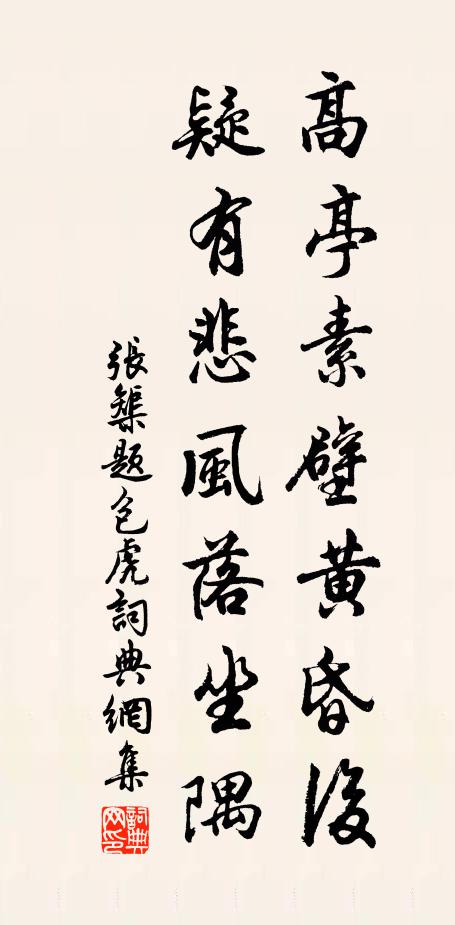 高亭素壁黄昏後
疑有悲風落坐隅
張榘題包虎詞典網集
詞典网印